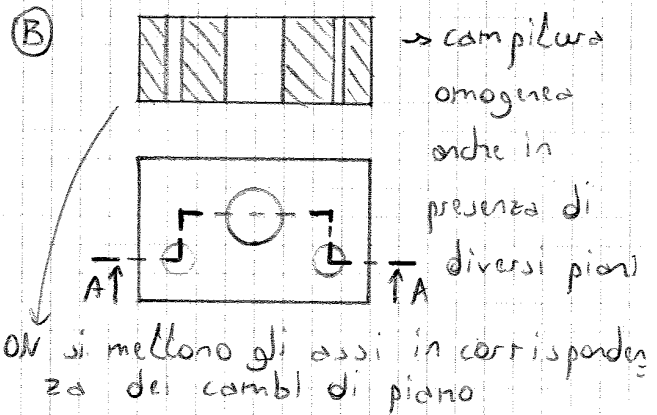 B
→ campitura
omogenea
anche in
presenza di
diversi piani
A A
ON si mettono gli assi in corrisponden
za dei cambi di piano